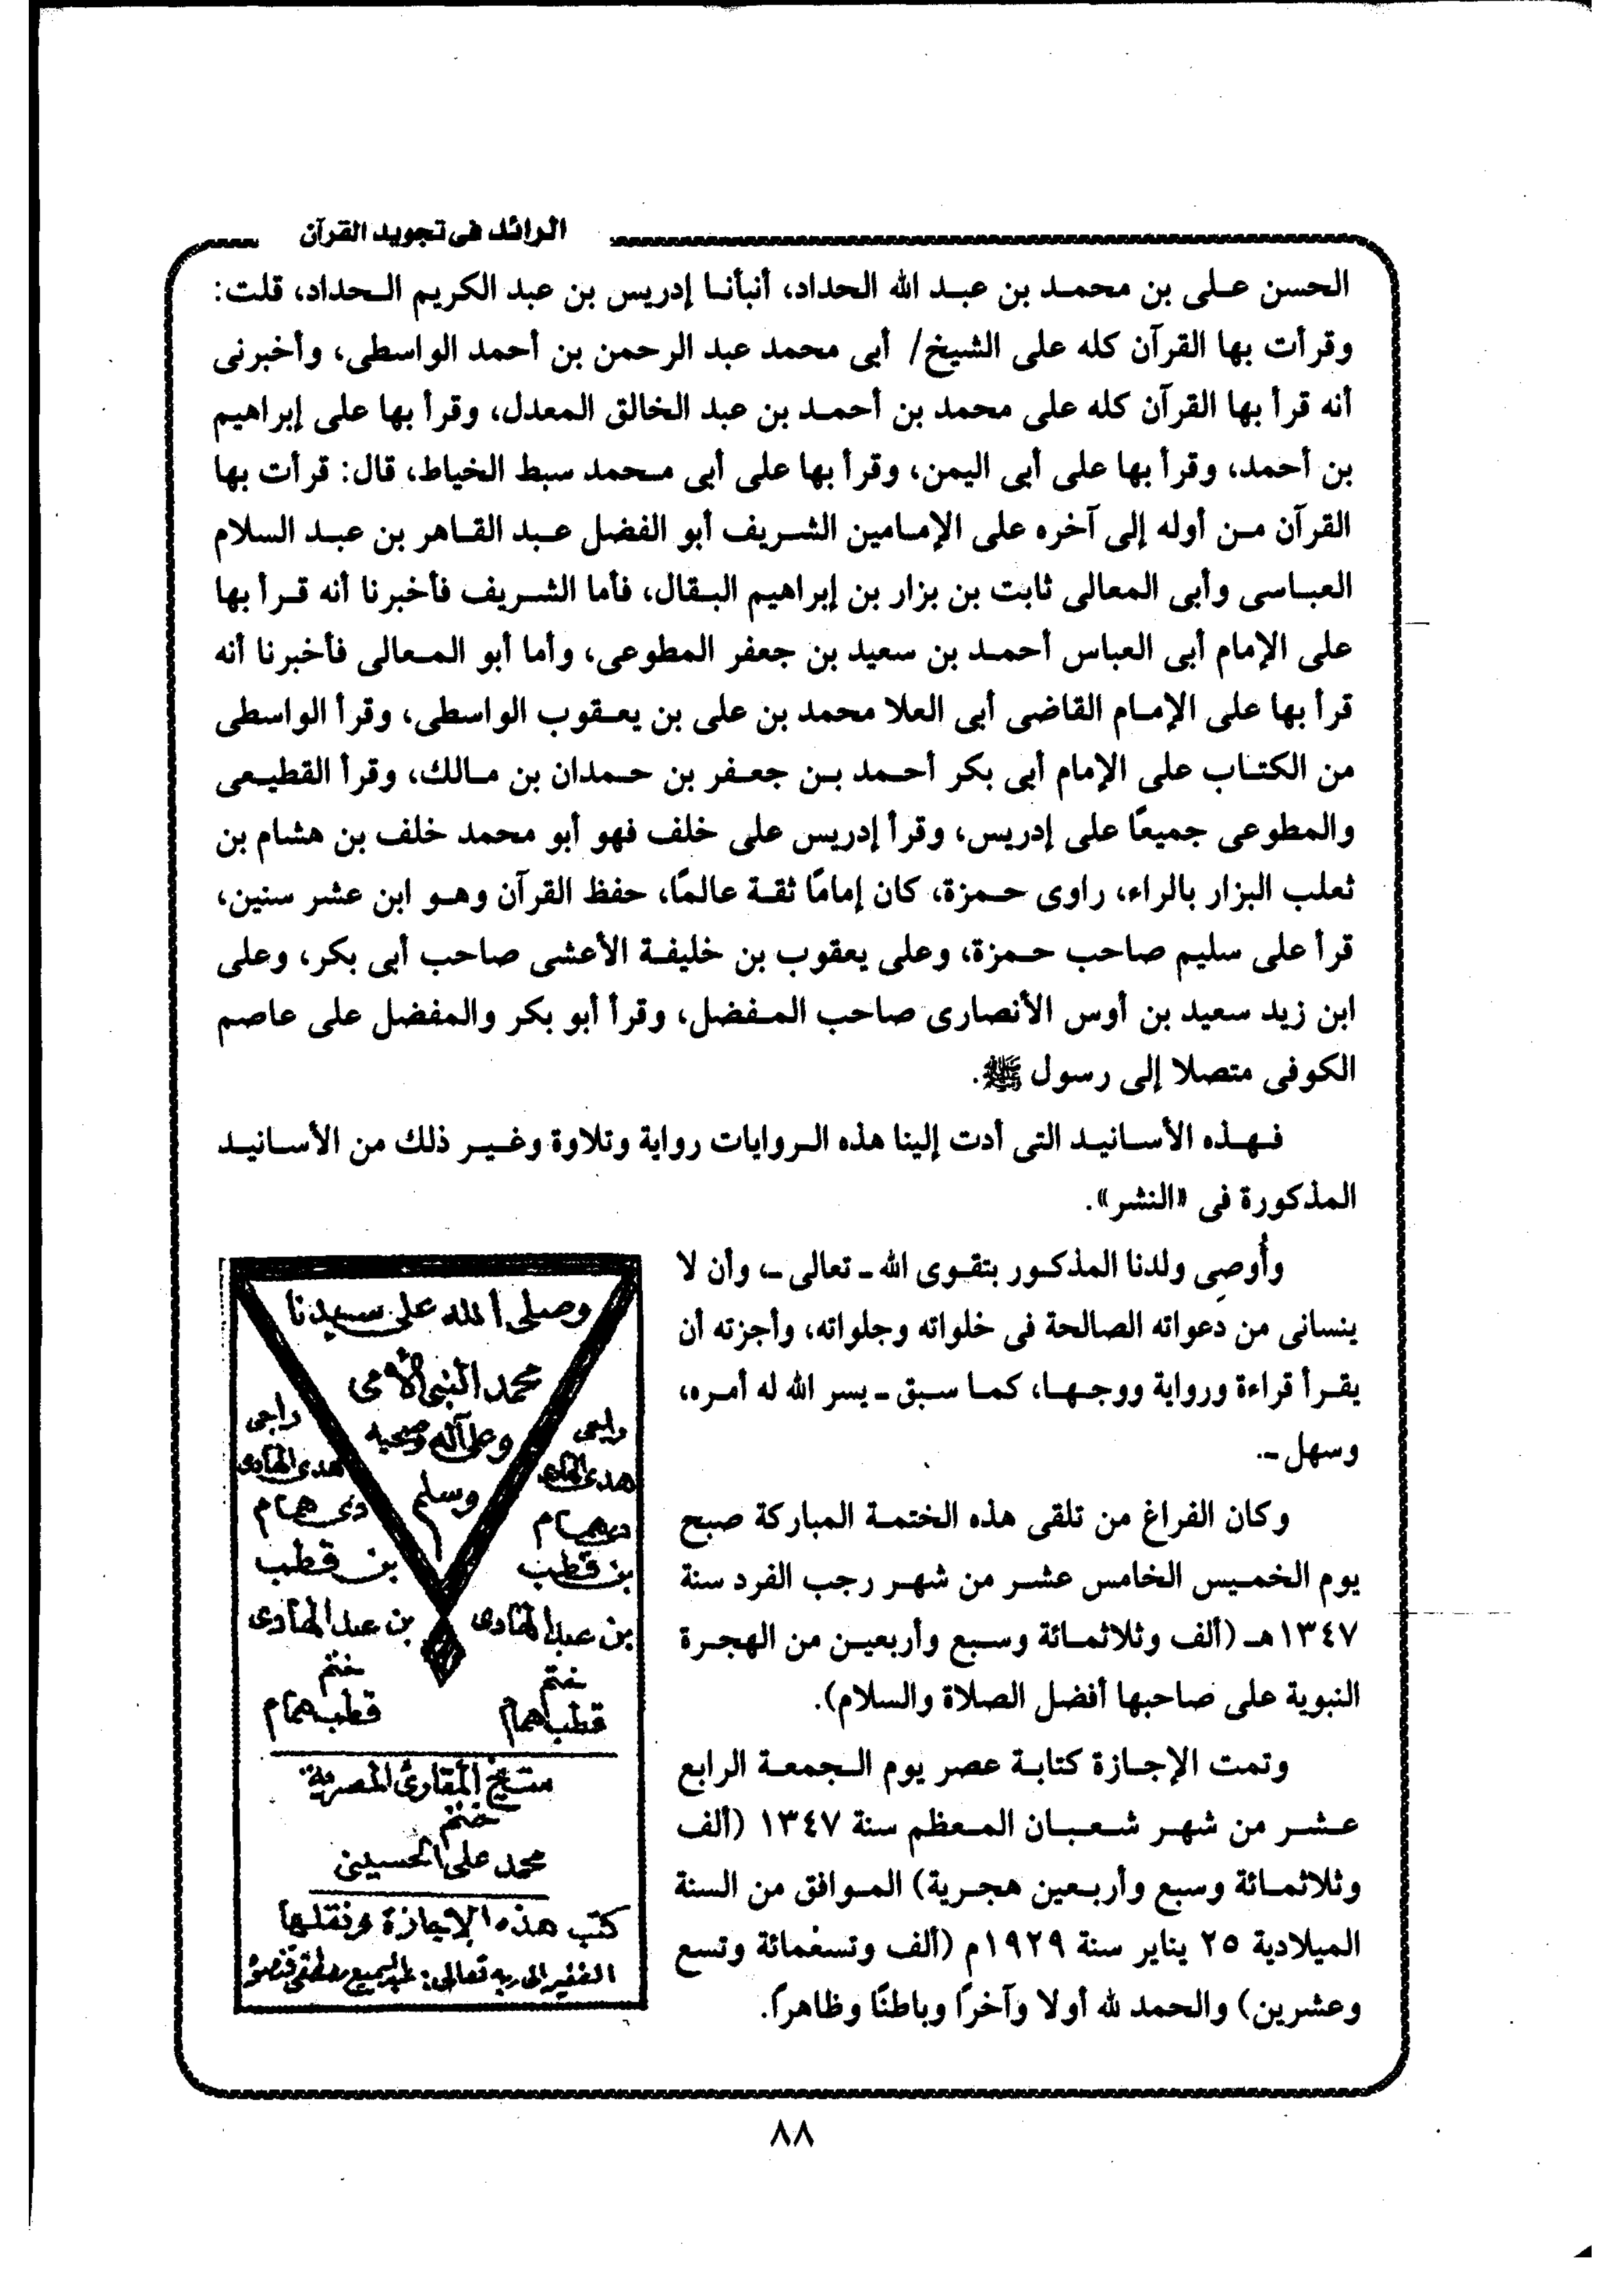 الرائد فى تجويد القرآن
الحسن على بن محمد بن عبد الله الحداد، أنبأنا إدريس بن عبد الكريم الحداد، قلت:
وقرأت بها القرآن كله على الشيخ/ أبى محمد عبد الرحمن بن أحمد الواسطى، وأخبرنى
أنه قرأ بها القرآن كله على محمد بن أحمد بن عبد الخالق المعدل، وقرأ بها على إبراهيم
بن أحمد، وقرأ بها على أبى اليمن، وقرأ بها على أبى محمد سبط الخياط، قال: قرأت بها
القرآن من أوله إلى آخره على الإمامين الشريف أبو الفضل عبد القاهر بن عبد السلام
العباسى وأبى المعالى ثابت بن بزار بن إبراهيم البقال، فأما الشريف فأخبرنا أنه قرأ بها
على الإمام أبى العباس أحمد بن سعيد بن جعفر المطوعى، وأما أبو المعالى فأخبرنا أنه
قرأ بها على الإمام القاضى أبى العلا محمد بن على بن يعقوب الواسطى، وقرأ الواسطى
من الكتاب على الإمام أبى بكر أحمد بن جعفر بن حمدان بن مالك، وقرأ القطيعى
والمطوعى جميعًا على إدريس، وقرأ إدريس على خلف فهو أبو محمد خلف بن هشام بن
ثعلب البزار بالراء، راوى حمزة، كان إمامًا ثقة عالمًا، حفظ القرآن وهو ابن عشر سنين،
قرأ على سليم صاحب حمزة، وعلى يعقوب بن خليفة الأعشى صاحب أبى بكر، وعلى
ابن زيد سعيد بن أوس الأنصارى صاحب المفضل، وقرأ أبو بكر والمفضل على عاصم
الكوفى متصلا إلى رسول ﷺ.
فهذه الأسانيد التى أدت إلينا هذه الروايات رواية وتلاوة وغير ذلك من الأسانيد
المذكورة فى «النشر».
وأُوصِى ولدنا المذكور بتقوى الله ـ تعالى ـ، وأن لا
ينسانى من دعواته الصالحة فى خلواته وجلواته، وأجزته أن
يقرأ قراءة ورواية ووجها، كما سبق ـ يسر الله له أمره،
وسهل ـ.
وكان الفراغ من تلقى هذه الختمة المباركة صبح
يوم الخميس الخامس عشر من شهر رجب الفرد سنة
١٣٤٧هـ (ألف وثلاثمائة وسبع وأربعين من الهجرة
النبوية على صاحبها أفضل الصلاة والسلام).
وتمت الإجازة كتابة عصر يوم الجمعة الرابع
عشر من شهر شعبان المعظم سنة ١٣٤٧ (ألف
وثلاثمائة وسبع وأربعين هجرية) الموافق من السنة
الميلادية ٢٥ يناير سنة ١٩٢٩م (ألف وتسعمائة وتسع
وعشرين) والحمد لله أولا وآخرًا وباطنًا وظاهرًا.
وصلى الله على سيدنا
محمد النبى الأمى
وعلى آله وصحبه
وسلم
راجى
هدى الهادى
همام
بن قطب
بن عبد الهادى
ختم
قطب همام
راجى
هدى الهادى
همام
بن قطب
بن عبد الهادى
ختم
قطب همام
شيخ المقارئ المصرية
ختم
محمد على الحسينى
كتب هذه الإجازة ونقلها
الفقير إلى ربه تعالى: عبد السميع
٨٨